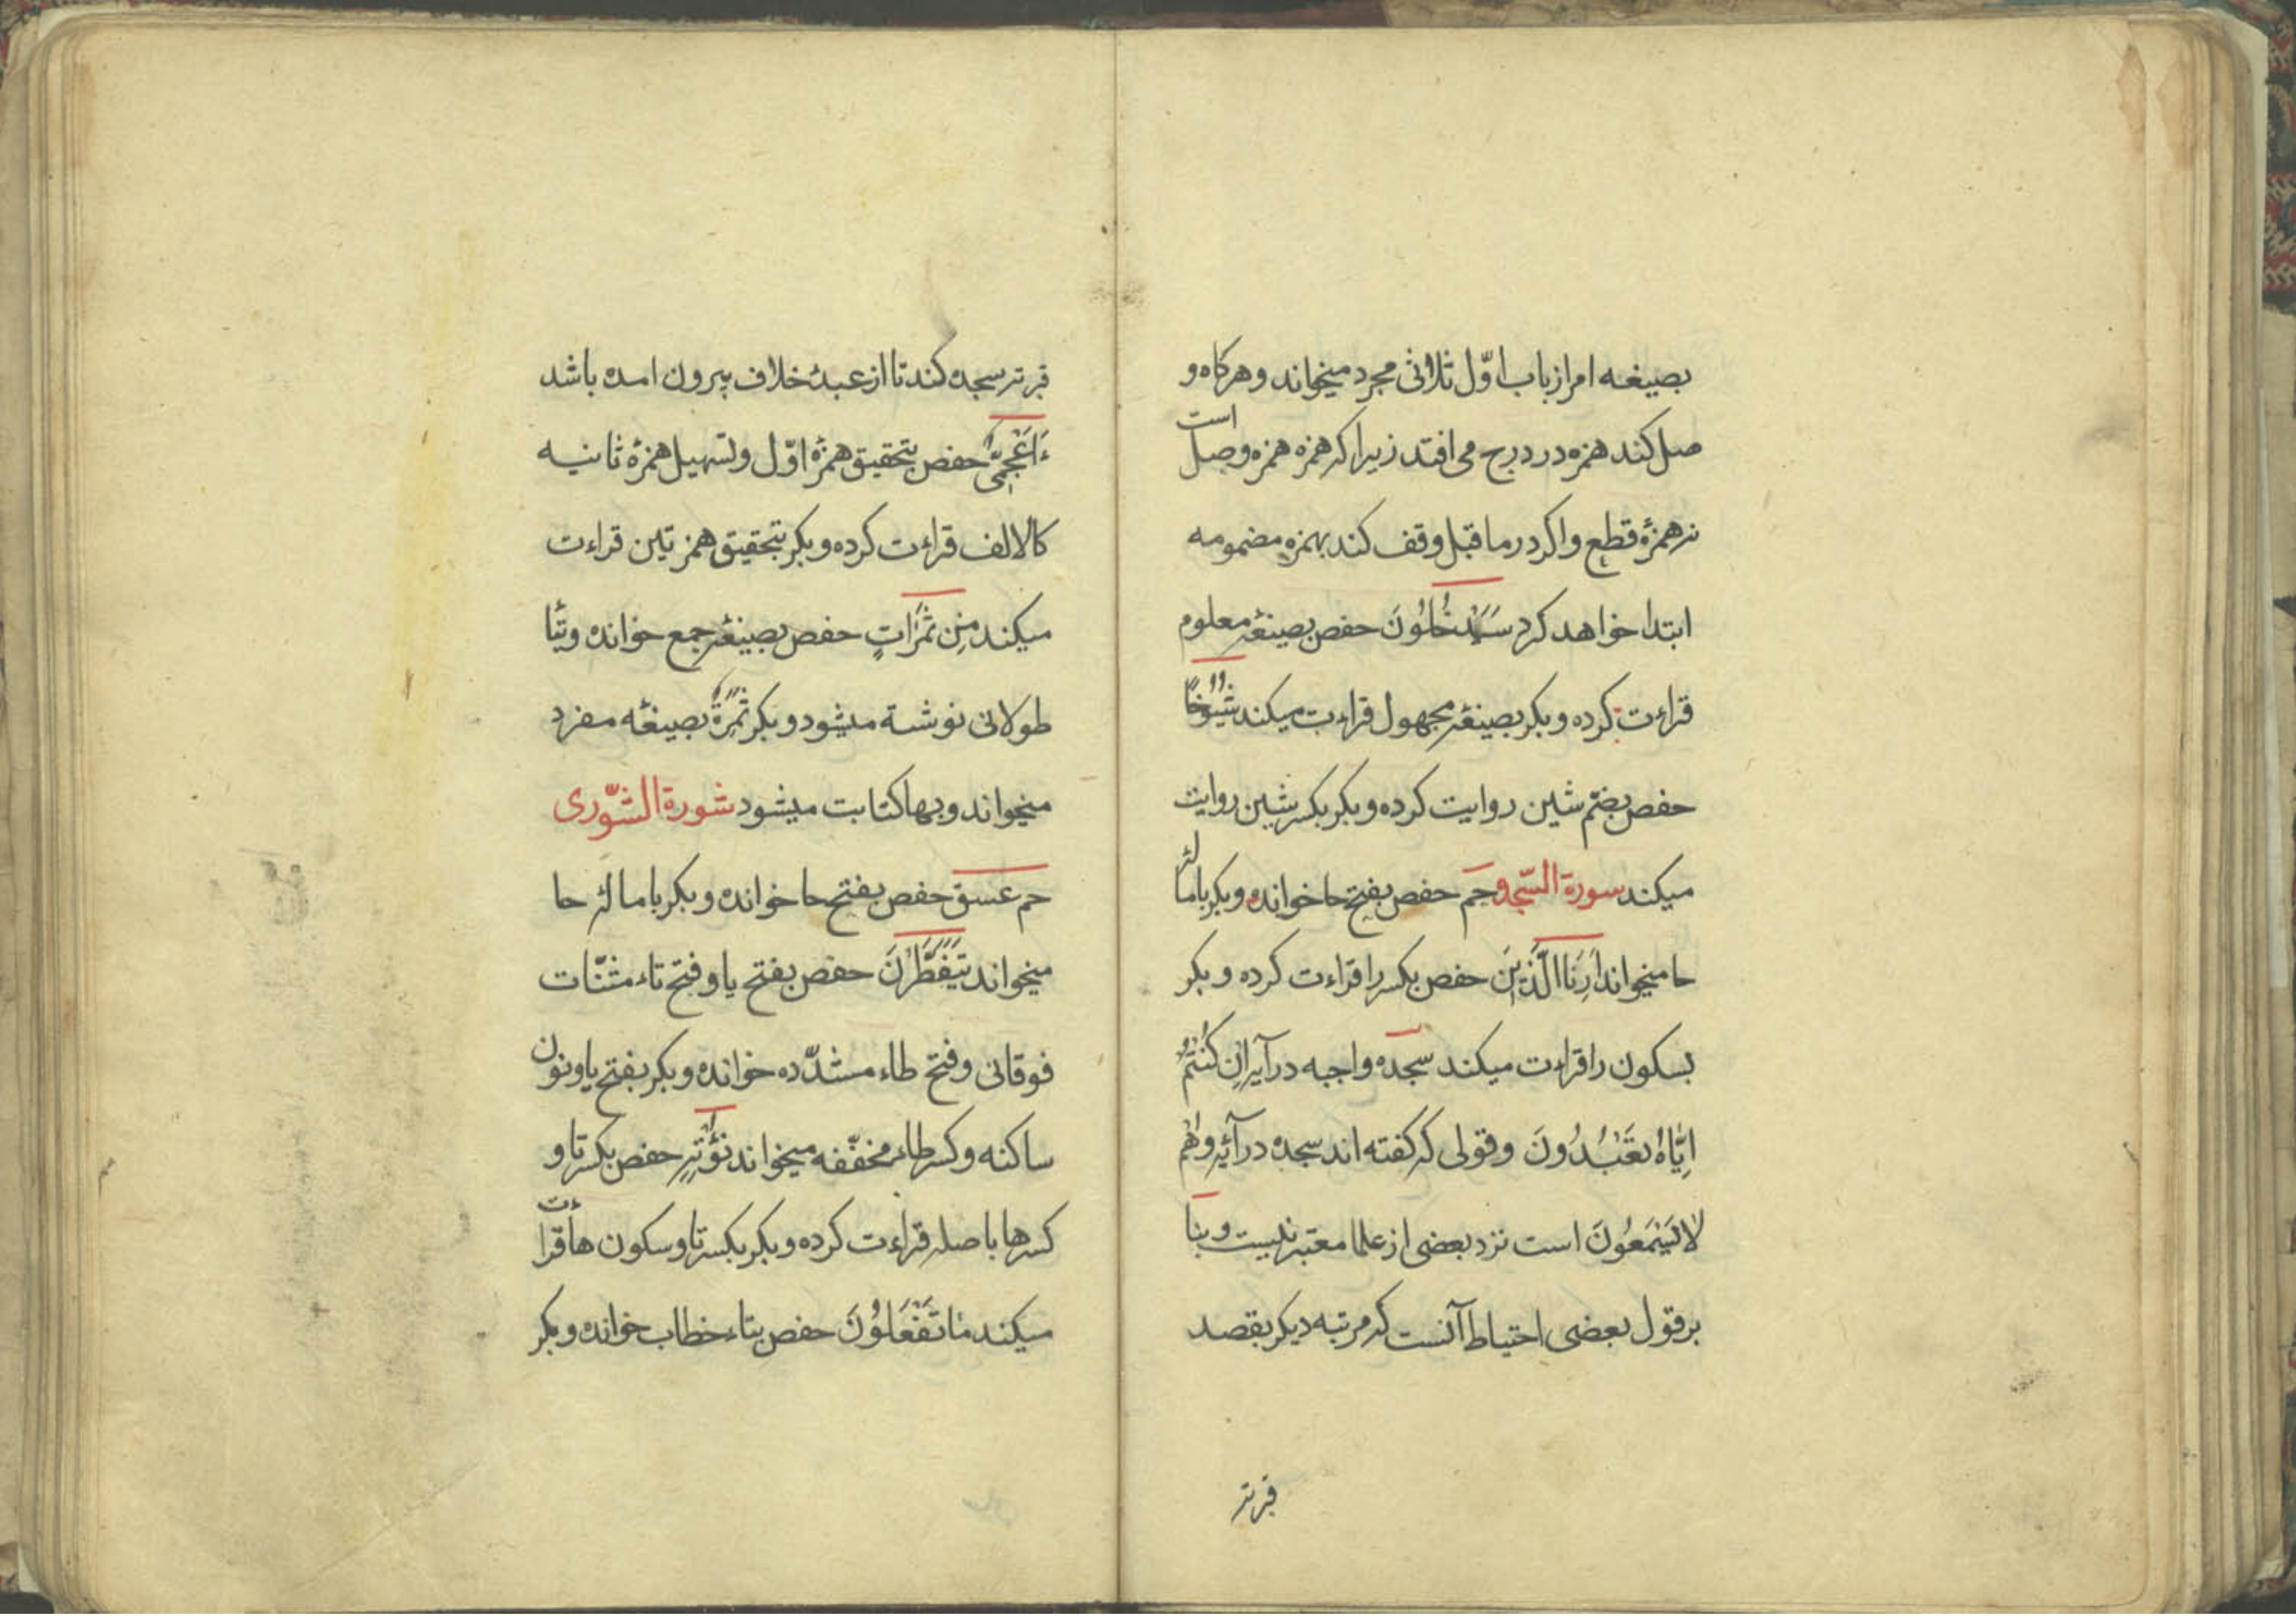 بصیغه امر از باب اوّل ثلاثی مجرد میخواند و هرکاه و
صل کند همزه در درج می افتد زیرا که همزه همزه وصل است
نه همزۀ قطع و اکر در ما قبل وقف کند بهمزه مضمومه
ابتدا خواهد کرد سَیَدْخُلُونَ حفص بصیغۀ معلوم
قراءت کرده و بکر بصیغۀ مجهول قراءت میکند شُیُوخًا
حفص بضمّ شین روایت کرده و بکر بکسر شین روایت
میکند سورة السّجده حم حفص بفتح حا خوانده و بکر بامالۀ
حا میخواند اَرِنَا الَّذَیْنِ حفص بکسر را قراءت کرده و بکر
بسکون را قراءت میکند سجده واجبه در آیه اِنْ کُنْتُمْ
اِیَّاهُ تَعْبُدُونَ و قولی که کفته اند سجده در آیۀ وَهُمْ
لَا یَسْئَمُونَ است نزد بعضی از علما معتبر نیست و بنا
بر قول بعضی احتیاط آنست که مرتبه دیکر بقصد
قربة
قربة سجده کند تا از عهدۀ خلاف بیرون امده باشد
ءَاَعْجَمِیٌّ حفص بتحقیق همزۀ اوّل و تسهیل همزۀ ثانیه
کالالف قراءت کرده و بکر بتحقیق همزتین قراءت
میکند مِنْ ثَمَرَاتٍ حفص بصیغۀ جمع خوانده و بتا
طولانی نوشته میشود و بکر ثَمَرَةٍ بصیغۀ مفرد
میخواند و بها کتابت میشود سورة الشّوری
حم عسق حفص بفتح حا خوانده و بکر بامالۀ حا
میخواند یَتَفَطَّرْنَ حفص بفتح یا و فتح تاء مثنّات
فوقانی و فتح طاء مشدّده خوانده و بکر بفتح یا و نون
ساکنه و کسر طاء مخفّفه میخواند نُؤْتِهِ حفص بکسر تا و
کسر ها با صله قراءت کرده و بکر بکسر تا و سکون ها قراءت
میکند مَا تَفْعَلُونَ حفص بتاء خطاب خوانده و بکر